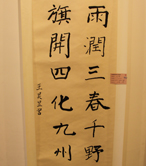 雨潤三春千野
旗開四化九州